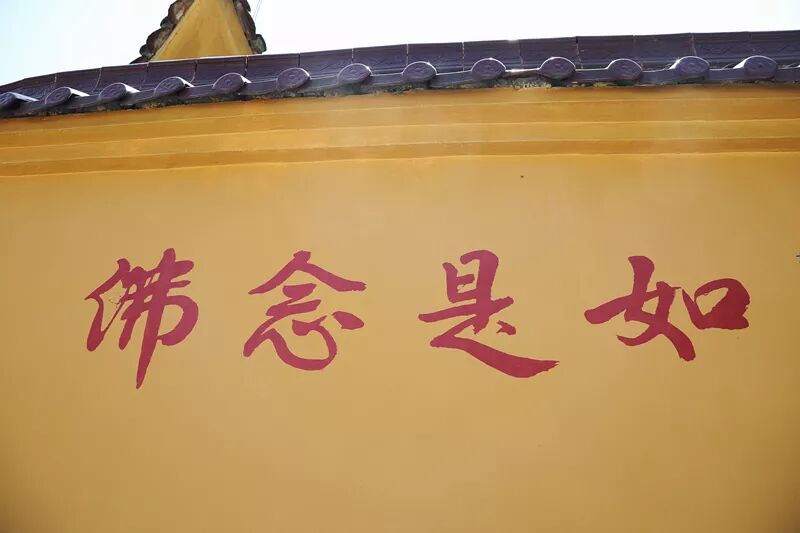 如是念佛